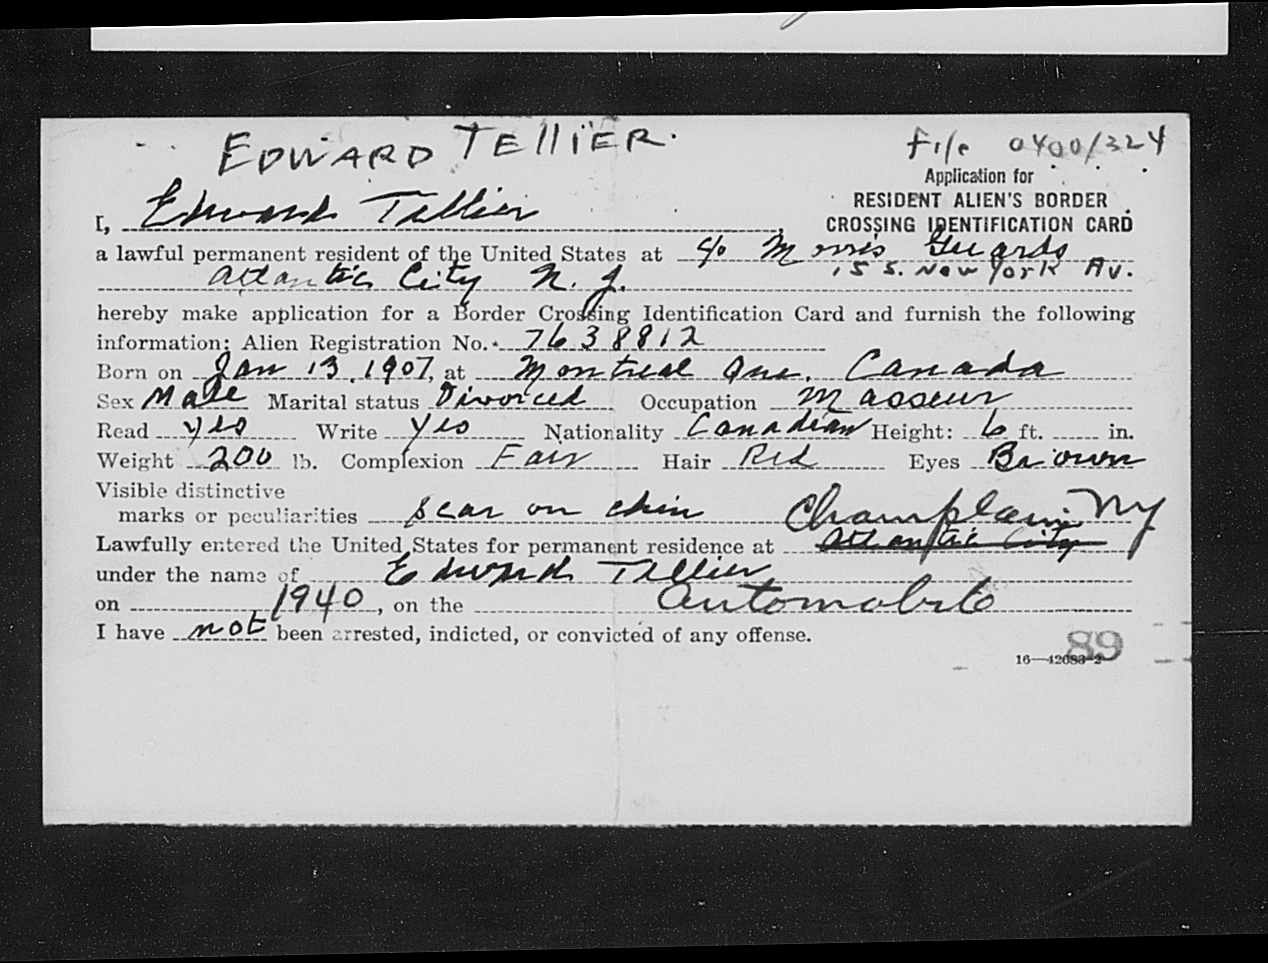 EDWARD TELLIER.
File 0400/324
Application for
RESIDENT ALIEN'S BORDER
CROSSING IDENTIFICATION CARD
I, Edward Tellier,
a lawful permanent resident of the United States at c/o Morris Guards
155. New York Av.
Atlantic City N. J.
hereby make application for a Border Crossing Identification Card and furnish the following
information: Alien Registration No. 7638812
Born on Jan 13, 1907, at Montreal Que. Canada
Sex Male Marital status Divorced Occupation Masseur
Read yes Write yes Nationality Canadian Height: 6 ft. in.
Weight 200 lb. Complexion Fair Hair Red Eyes Brown
Visible distinctive
marks or peculiarities scar on chin Champlain NY
Lawfully entered the United States for permanent residence at Atlantic City
under the name of Edward Tellier
on 1940, on the Automobile
I have not been arrested, indicted, or convicted of any offense.
89
16—42083-2